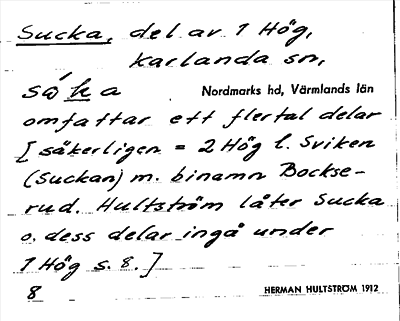 Sucka, del av 1 Hög,
Karlanda sn,
såka Nordmarks hd, Värmlands län
omfattar ett flertal delar
[säkerligen = 2 Hög l. Sviken
(Suckan) m. binamn Bockse-
rud. Hultström låter Sucka
o. dess delar ingå under
1 Hög s. 8.]
8 HERMAN HULTSTRÖM 1912